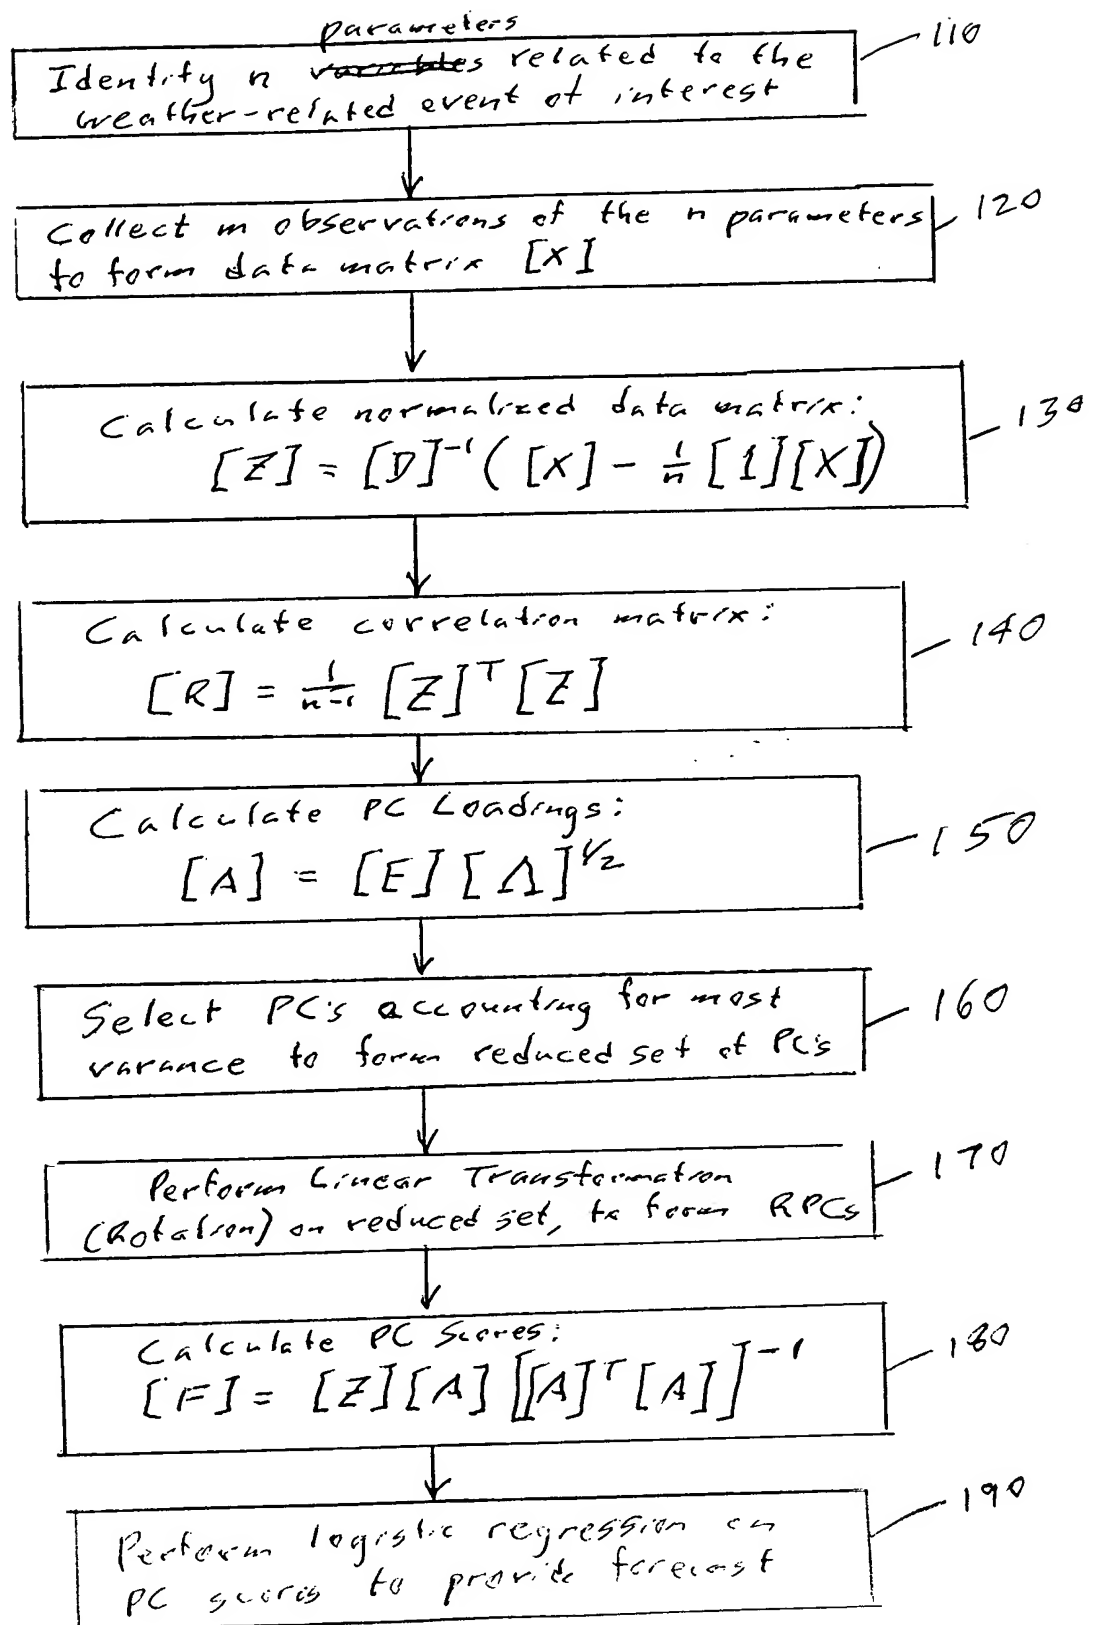 parameters
110
Identify n variables related to the
weather-related event of interest
120
Collect m observations of the n parameters
to form data matrix [X]
130
Calculate normalized data matrix:
[Z] = [D]⁻¹ ( [X] - 1/n [1][X])
140
Calculate correlation matrix:
[R] = 1/n-1 [Z]ᵀ [Z]
150
Calculate PC Loadings:
[A] = [E] [Λ]^1/2
160
Select PC's accounting for most
varance to form reduced set of PC's
170
Perform Linear Transformation
(Rotation) on reduced set, to form RPCs
180
Calculate PC Scores:
[F] = [Z][A] [[A]ᵀ [A]]⁻¹
190
Perform logistic regression on
PC scores to provide forecast